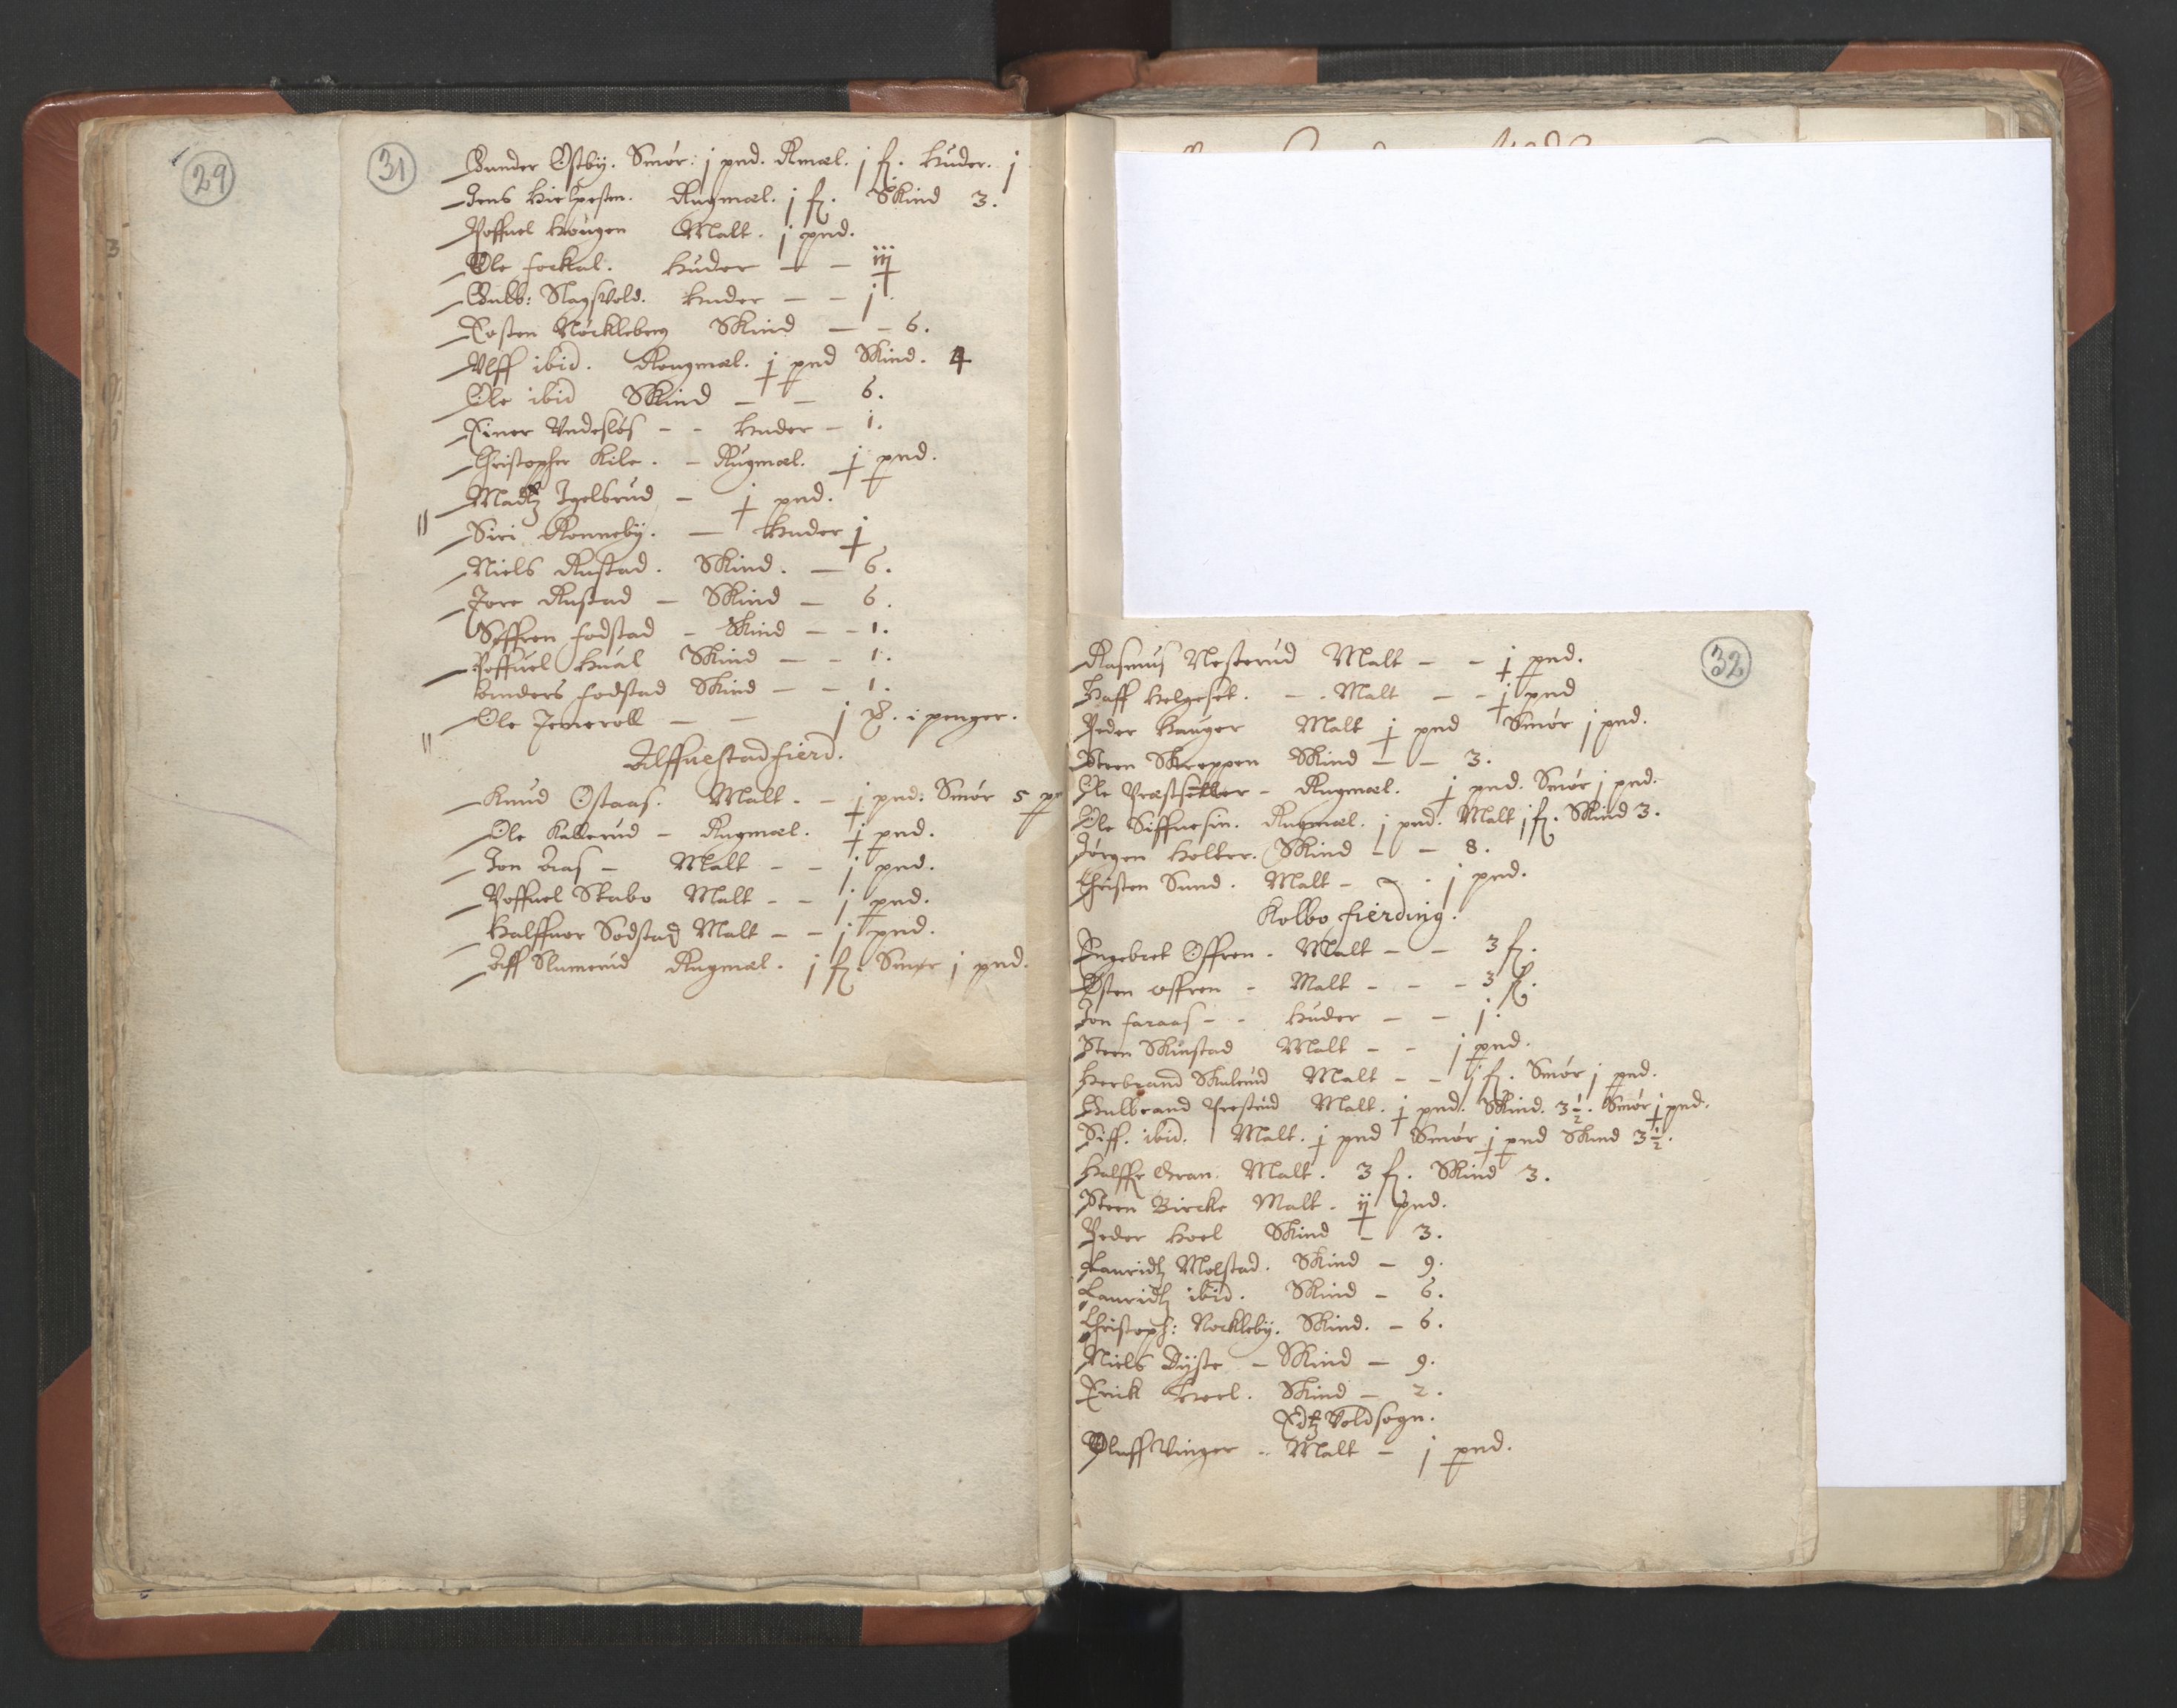 29
31
Gunder Østby. Smør: j pnd. Rmæl. j fr. Huder. j
Jens Hielpesten. Rugmæl. j fr. Skind 3.
Poffuel Hougen Malt. j pnd.
Ole Fockal. Huder — — iij
Gulb: Slagsvold. Huder — — j.
Tosten Nøckleberg Skind — — 6.
Vlff ibid. Rougmæl. j pnd Skind. 4
Ole ibid Skind — — 6.
Einer Vndesløs - - Huder — 1.
Christopher Kile. - Rugmæl. j pnd.
Madtz Igelsrud — j pnd.
Siri Ronneby. — Huder j
Niels Rustad. Skind. — 6.
Tore Rustad — Skind — 6.
Siffren Fodstad - Skind — - 1.
Poffuel Hual Skind — - 1.
Anders Fodstad Skind — — 1.
Ole — — j i penger.
Alffuestad fierd.
Knud Østaas. Malt. — j pnd: Smør 5 pn
Ole Kallerud — Rugmæl. j pnd.
Jon Aas — Malt - - j pnd.
Poffuel Stabo Malt - - j pnd.
Halffuor Sodstad Malt — — j pnd.
Alff Slumerud Rugmæl. j fr. Smør j pnd.
32
Rasmus Nesterud Malt — - j pnd.
Haff Helgeset. — . Malt — - j pnd
Peder Hauger Malt j pnd Smør j pnd.
Steen Skreppen Skind — — 3.
Ole Præstsetter - Rugmæl. j pnd. Smør j pnd.
Ole Siffuesin. Rugmæl. j pnd. Malt j fr. Skind 3.
Jørgen Holter. Skind — — 8.
Christen Sund. Malt — - . j pnd.
Kolbo fierding.
Engebret Offren. Malt — — 3 fr.
Østen offren - Malt - - - 3 fr.
Jon Faraas — - Huder — — j.
Steen Skiustad Malt - - j pnd.
Herbrand Skulerud Malt — — j fr. Smør j pnd.
Gulbrand Presterud Malt. j pnd. Skind. 3½. Smør j pnd.
Siff. ibid. Malt. j pnd Smør j pnd Skind 3½.
Halffr Gran. Malt. 3 fr. Skind 3.
Steen Bircke Malt. ij pnd.
Peder Hoel Skind — 3.
Lauridtz Molstad. Skind — 9.
Lauridtz ibid. Skind — 6.
Christoph: Nockleby. Skind. — 6.
Niels Dyste — Skind — 9.
Erick Hoel. Skind — 2.
Edtz Vold sogn.
Oluff Vinger - Malt — j pnd.